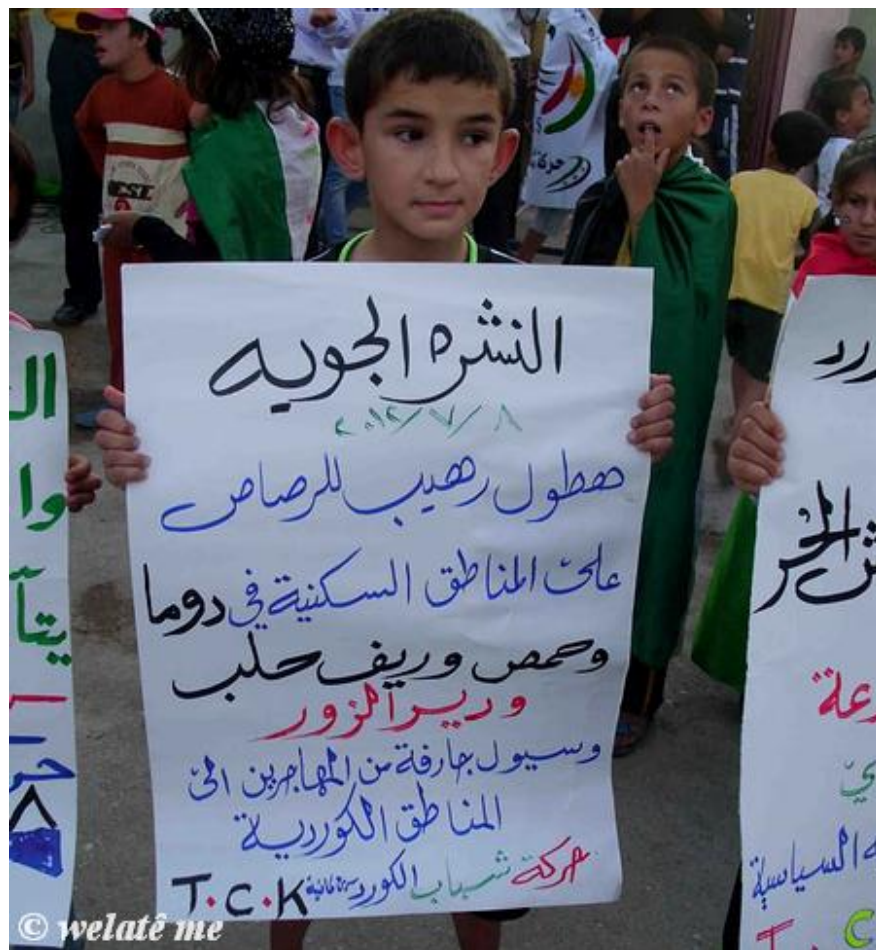 النشره الجويه
٢٠١٢/٧/٨
هطول رهيب للرصاص
على المناطق السكنية في دوما
وحمص وريف حلب
وديرالزور
وسيول جارفة من المهاجرين الى
المناطق الكوردية
حركة شباب الكورد
T.C.K
ال
وا
يتأ
حر
رد
ش الحر
السياسية
T C
حركة
EST
© welatê me